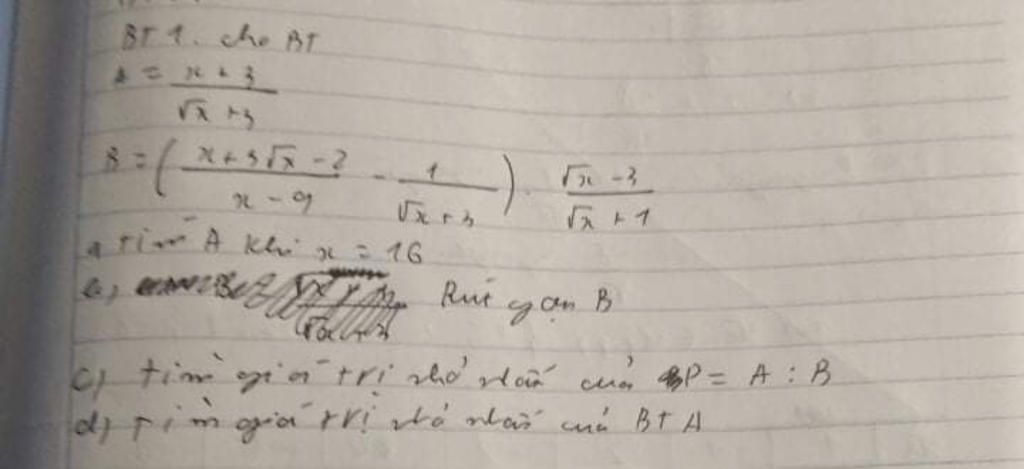 BT 1. cho BT
A = \frac{x + 3}{\sqrt{x} + 3}
B = ( \frac{x + 3\sqrt{x} - 2}{x - 9} - \frac{1}{\sqrt{x} + 3} ) . \frac{\sqrt{x} - 3}{\sqrt{x} + 1}
a, Tìm A khi x = 16
Rút gọn B
c, tìm giá trị nhỏ nhất của P = A : B
d, Tìm giá trị nhỏ nhất của BT A